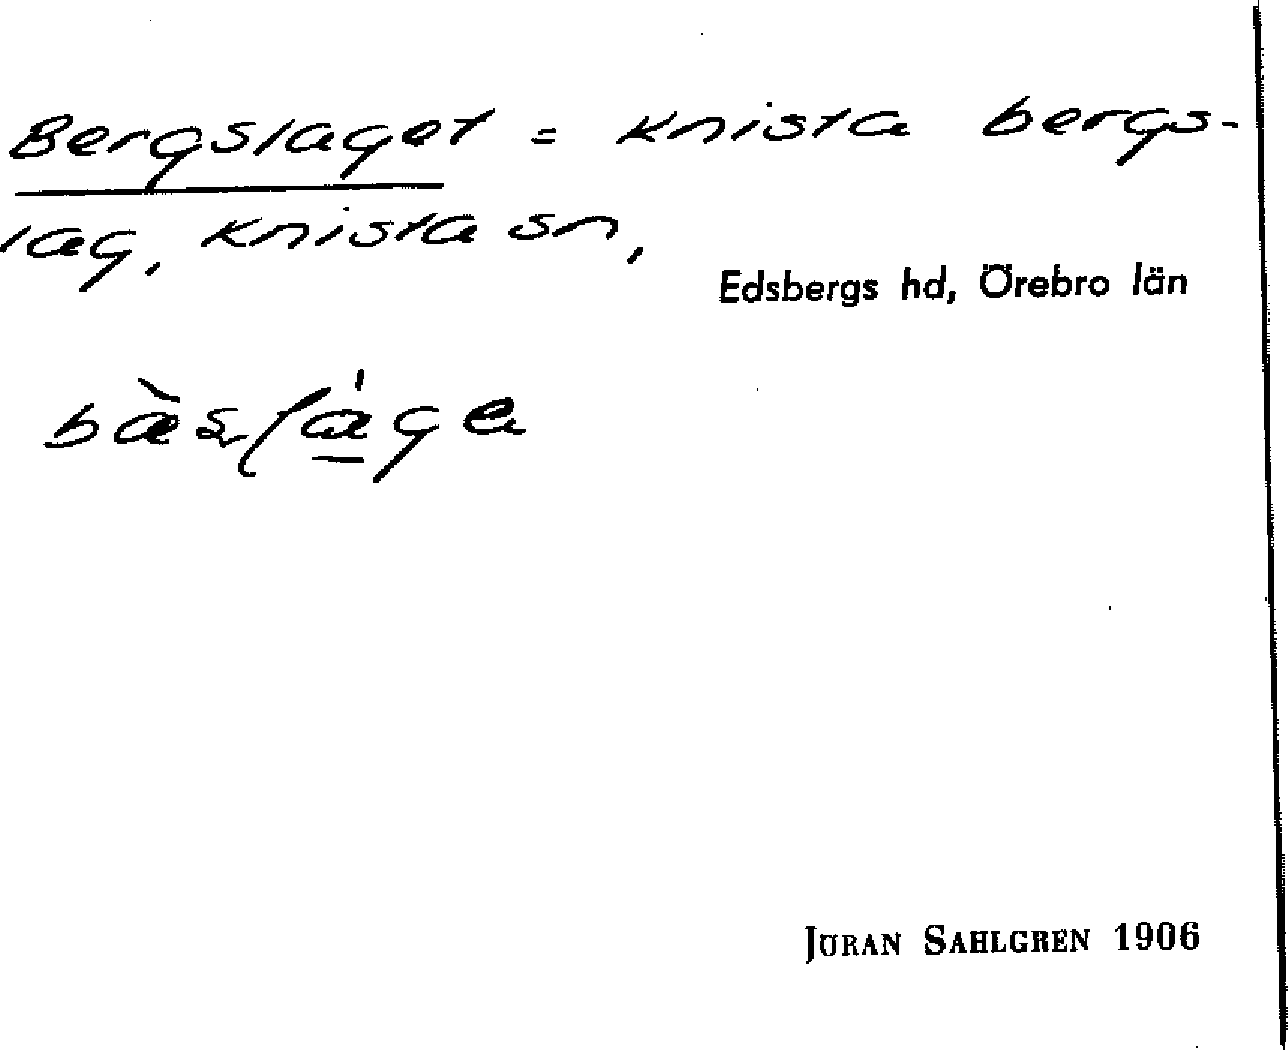 Bergslaget = Knista bergs-
lag, Knista sn,
Edsbergs hd, Örebro län
JÖRAN SAHLGREN 1906